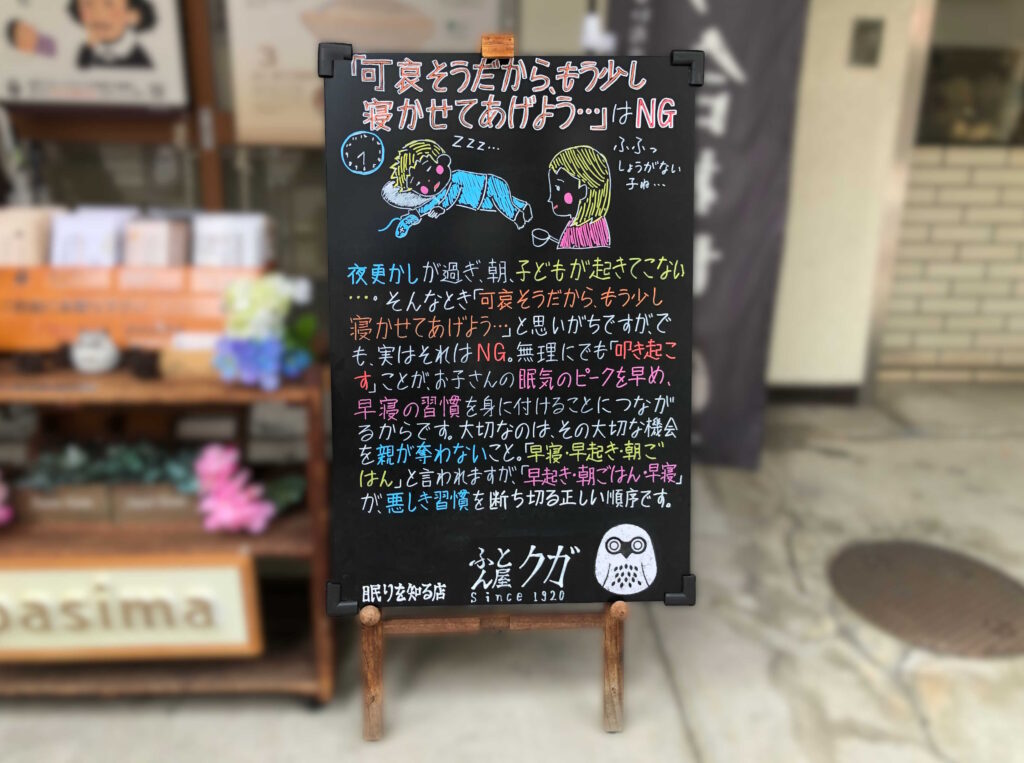 「可哀そうだから、もう少し
寝かせてあげよう…」はNG
zzz…
ふふっ
しょうがない
子ね…
1
夜更かしが過ぎ、朝、子どもが起きてこない
…。そんなとき「可哀そうだから、もう少し
寝かせてあげよう…」と思いがちですが、で
も、実はそれはNG。無理にでも「叩き起こ
す」ことが、お子さんの眠気のピークを早め、
早寝の習慣を身に付けることにつなが
るからです。大切なのは、その大切な機会
を親が奪わないこと。「早寝・早起き・朝ご
はん」と言われますが、「早起き・朝ごはん・早寝」
が、悪しき習慣を断ち切る正しい順序です。
眠りを知る店
ふとん屋クガ
Since 1920
pasima